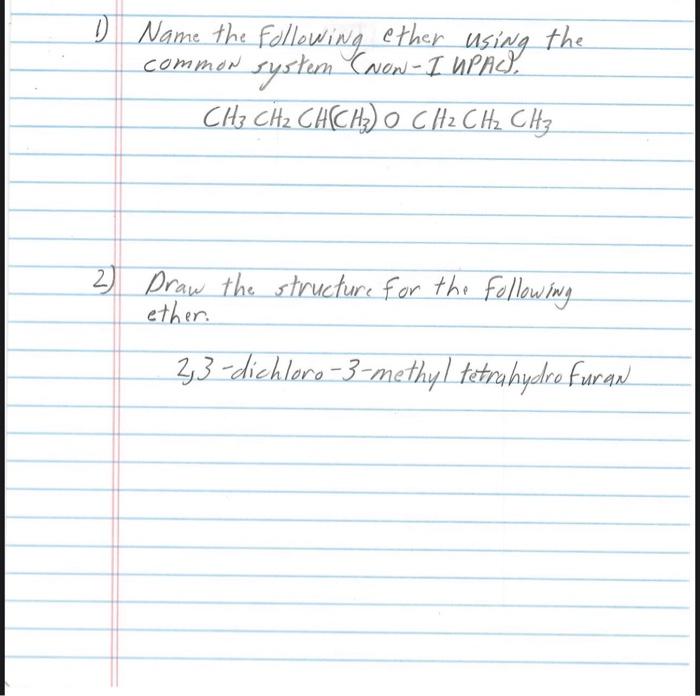 1) Name the following ether using the
common system (NON-IUPAC).
CH3 CH2 CH(CH3) O CH2 CH2 CH3
2) Draw the structure for the following
ether.
2,3-dichloro-3-methyl tetrahydrofuran